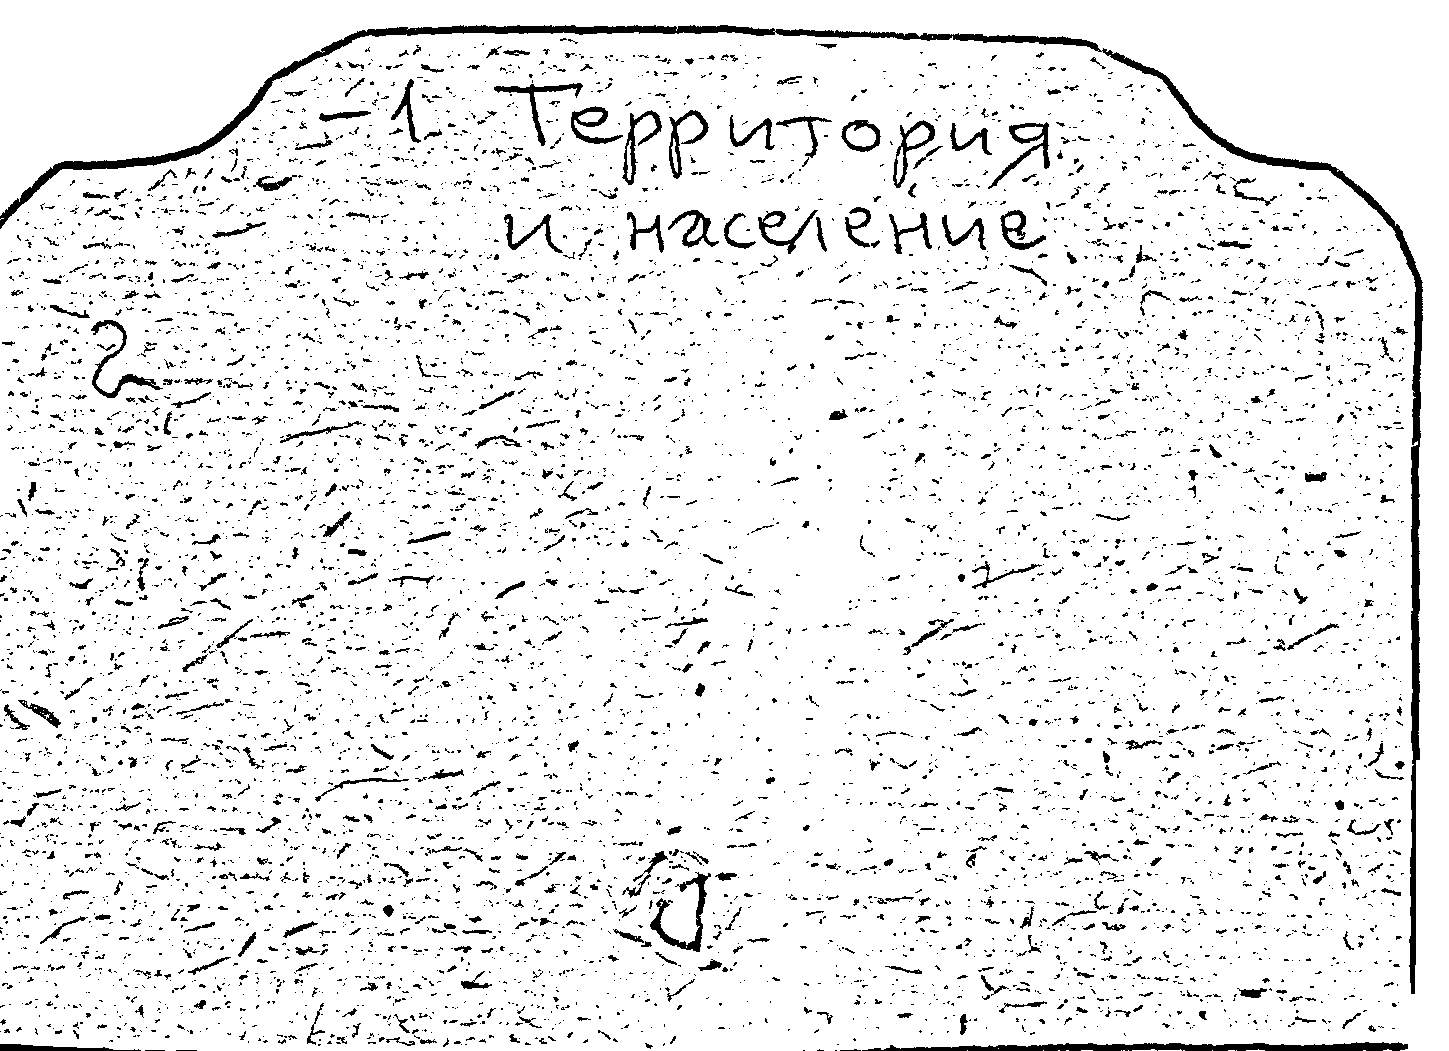 - 1 Территория
и население